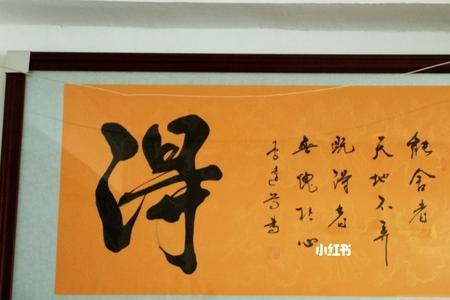 能舍者
天地不弃
既得者
無愧於心
得
小红书